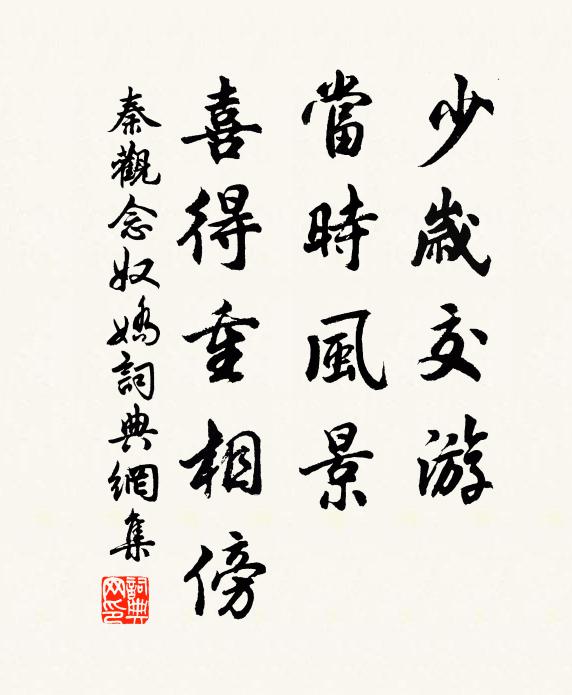 少歲交游
當時風景
喜得重相傍
秦觀念奴嬌詞典網集
詞典
网印